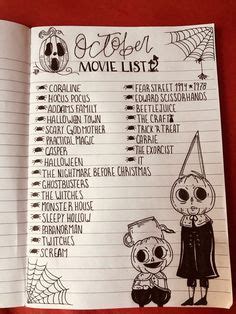 October
MOVIE LIST
CORALINE
HOCUS POCUS
ADDAMS FAMILY
HALLOWEEN TOWN
SCARY GODMOTHER
PRACTICAL MAGIC
CASPER
HALLOWEEN
THE NIGHTMARE BEFORE CHRISTMAS
GHOSTBUSTERS
THE WITCHES
MONSTER HOUSE
SLEEPY HOLLOW
PARANORMAN
TWITCHES
SCREAM
FEAR STREET 1994 + 1978
EDWARD SCISSORHANDS
BEETLEJUICE
THE CRAFT
TRICK R TREAT
CARRIE
THE EXORCIST
IT